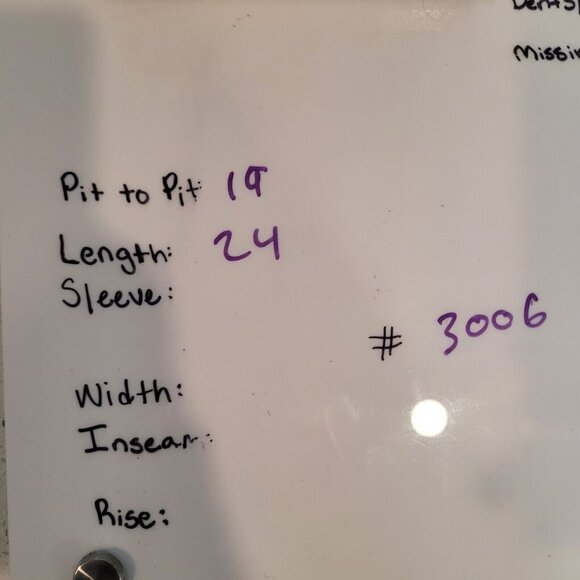 Missin
Pit to Pit: 19
Length: 24
Sleeve:
# 3006
Width:
Inseam:
Rise: